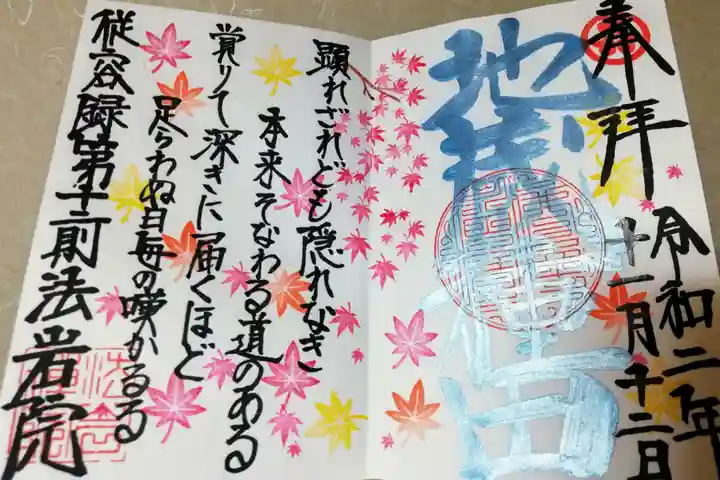 奉拝
令和二年
十一月十二日
地蔵種田
顕れざれども隠れなき
本来そなわる道のある
覚りて深きに届くほど
足らわぬ日毎の嘆かるる
従容録第十二則法岩院